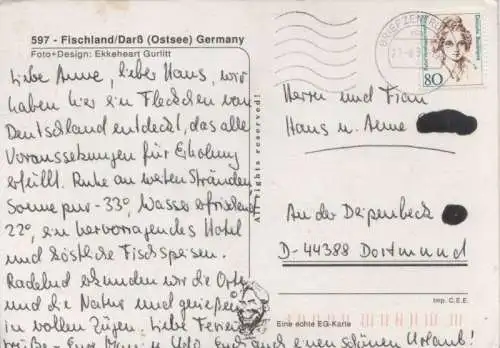 597 - Fischland/Darß (Ostsee) Germany
Foto+Design: Ekkeheart Gurlitt
Liebe Anne, lieber Hans, wir
haben hier ein Fleckchen von
Deutschland entdeckt, das alle
Voraussetzungen für Erholung
erfüllt. Ruhe an weiten Stränden,
Sonne pur -33°, Wasser erfrischend
22°, ein hervorragendes Hotel
und köstliche Fischspeisen.
Radelnd erkunden wir die Orte
und die Natur und genießen
in vollen Zügen. Liebe Ferien-
grüße - Eure u. Udo. Euch auch einen schönen Urlaub!
All rights reserved!
BRIEFZENTRUM
Deutsche Bundespost
80
Herrn und Frau
Hans u. Anne
An der Deipenbeck
D-44388 Dortmund
Imp. C.E.E.
Eine echte EG-Karte